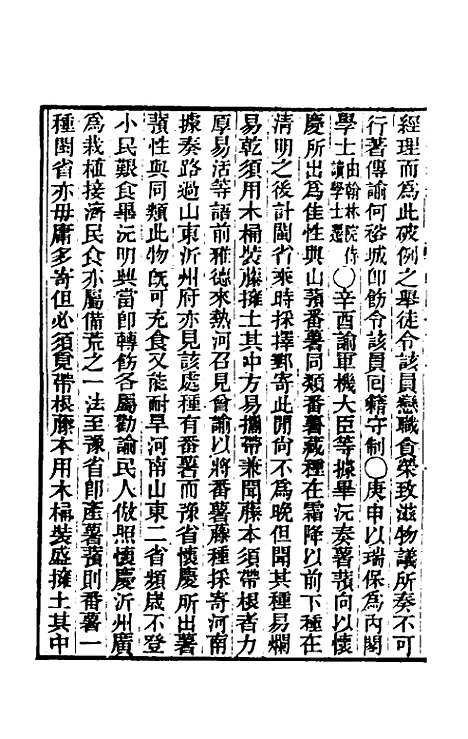 經理而為此破例之舉徒令該員戀職貪榮致滋物議所奏不可
行著傳諭何裕城即飭令該員回籍守制○庚申以瑞保為內閣
學士由翰林院侍讀學士遷○辛酉諭軍機大臣等據畢沅奏薯蕷向以懷
慶所出為佳性與山蕷番薯同類番薯藏種在霜降以前下種在
清明之後計閩省乘時採擇郵寄此間尚不為晚但聞其種易爛
易乾須用木桶裝藤擁土其中方易攜帶兼聞藤本須帶根者力
厚易活等語前雅德來熱河召見曾諭以將番薯藤種採寄河南
據奏路過山東沂州府亦見該處種有番薯而豫省懷慶所出薯
蕷性與同類此物既可充食又能耐旱河南山東二省頻歲不登
小民艱食畢沅明興當即轉飭各屬勸諭民人倣照懷慶沂州廣
為栽植接濟民食亦屬備荒之一法至豫省即產薯蕷則番薯一
種閩省亦毋庸多寄但必須覓帶根藤本用木桶裝盛擁土其中